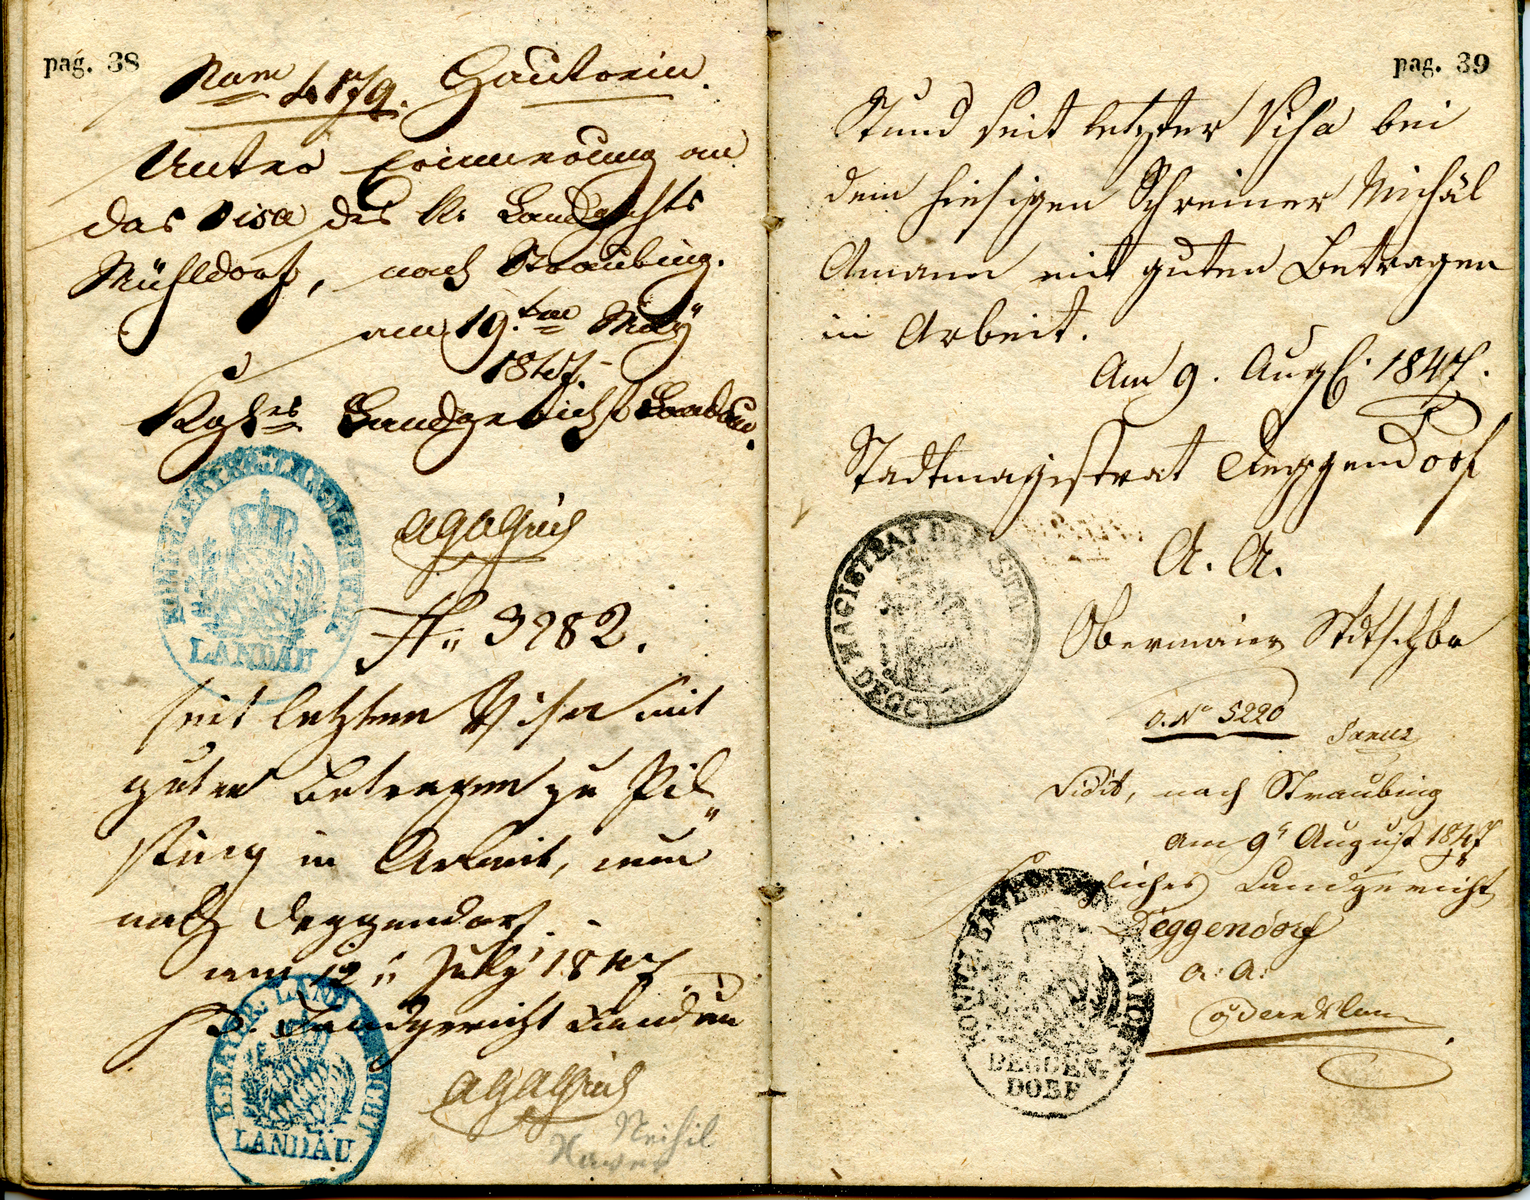 pag. 38
Num 4179. Gautorin.
Unter Erinnerung an
das Visa des k. Landgchts
Mühldorf, nach Straubing.
am 19.ten May
1847.
Kgl.es Landgericht Landau.
LANDAU
N. 3982.
seit letztem Visa mit
gutem Betragen zu Pil-
sting in Arbeit, nun
nach Deggendorf.
am 12. July 1847
K. Landgericht Landau
K. BAYER. LANDGERICHT
LANDAU
pag. 39
Stund seit letzter Visa bei
dem hiesigen Schreiner Michäl
Amann mit guten Betragen
in Arbeit.
Am 9. Augst. 1847.
Stadtmagistrat Deggendorf
A. A.
Obermaier Stdtschbr
MAGISTRAT DER STADT
DEGGENDORF
o. No 5220
Vidit, nach Straubing
am 9t August 1847
Königliches Landgericht
Deggendorf
a. a.
DEGGEN-
DORF